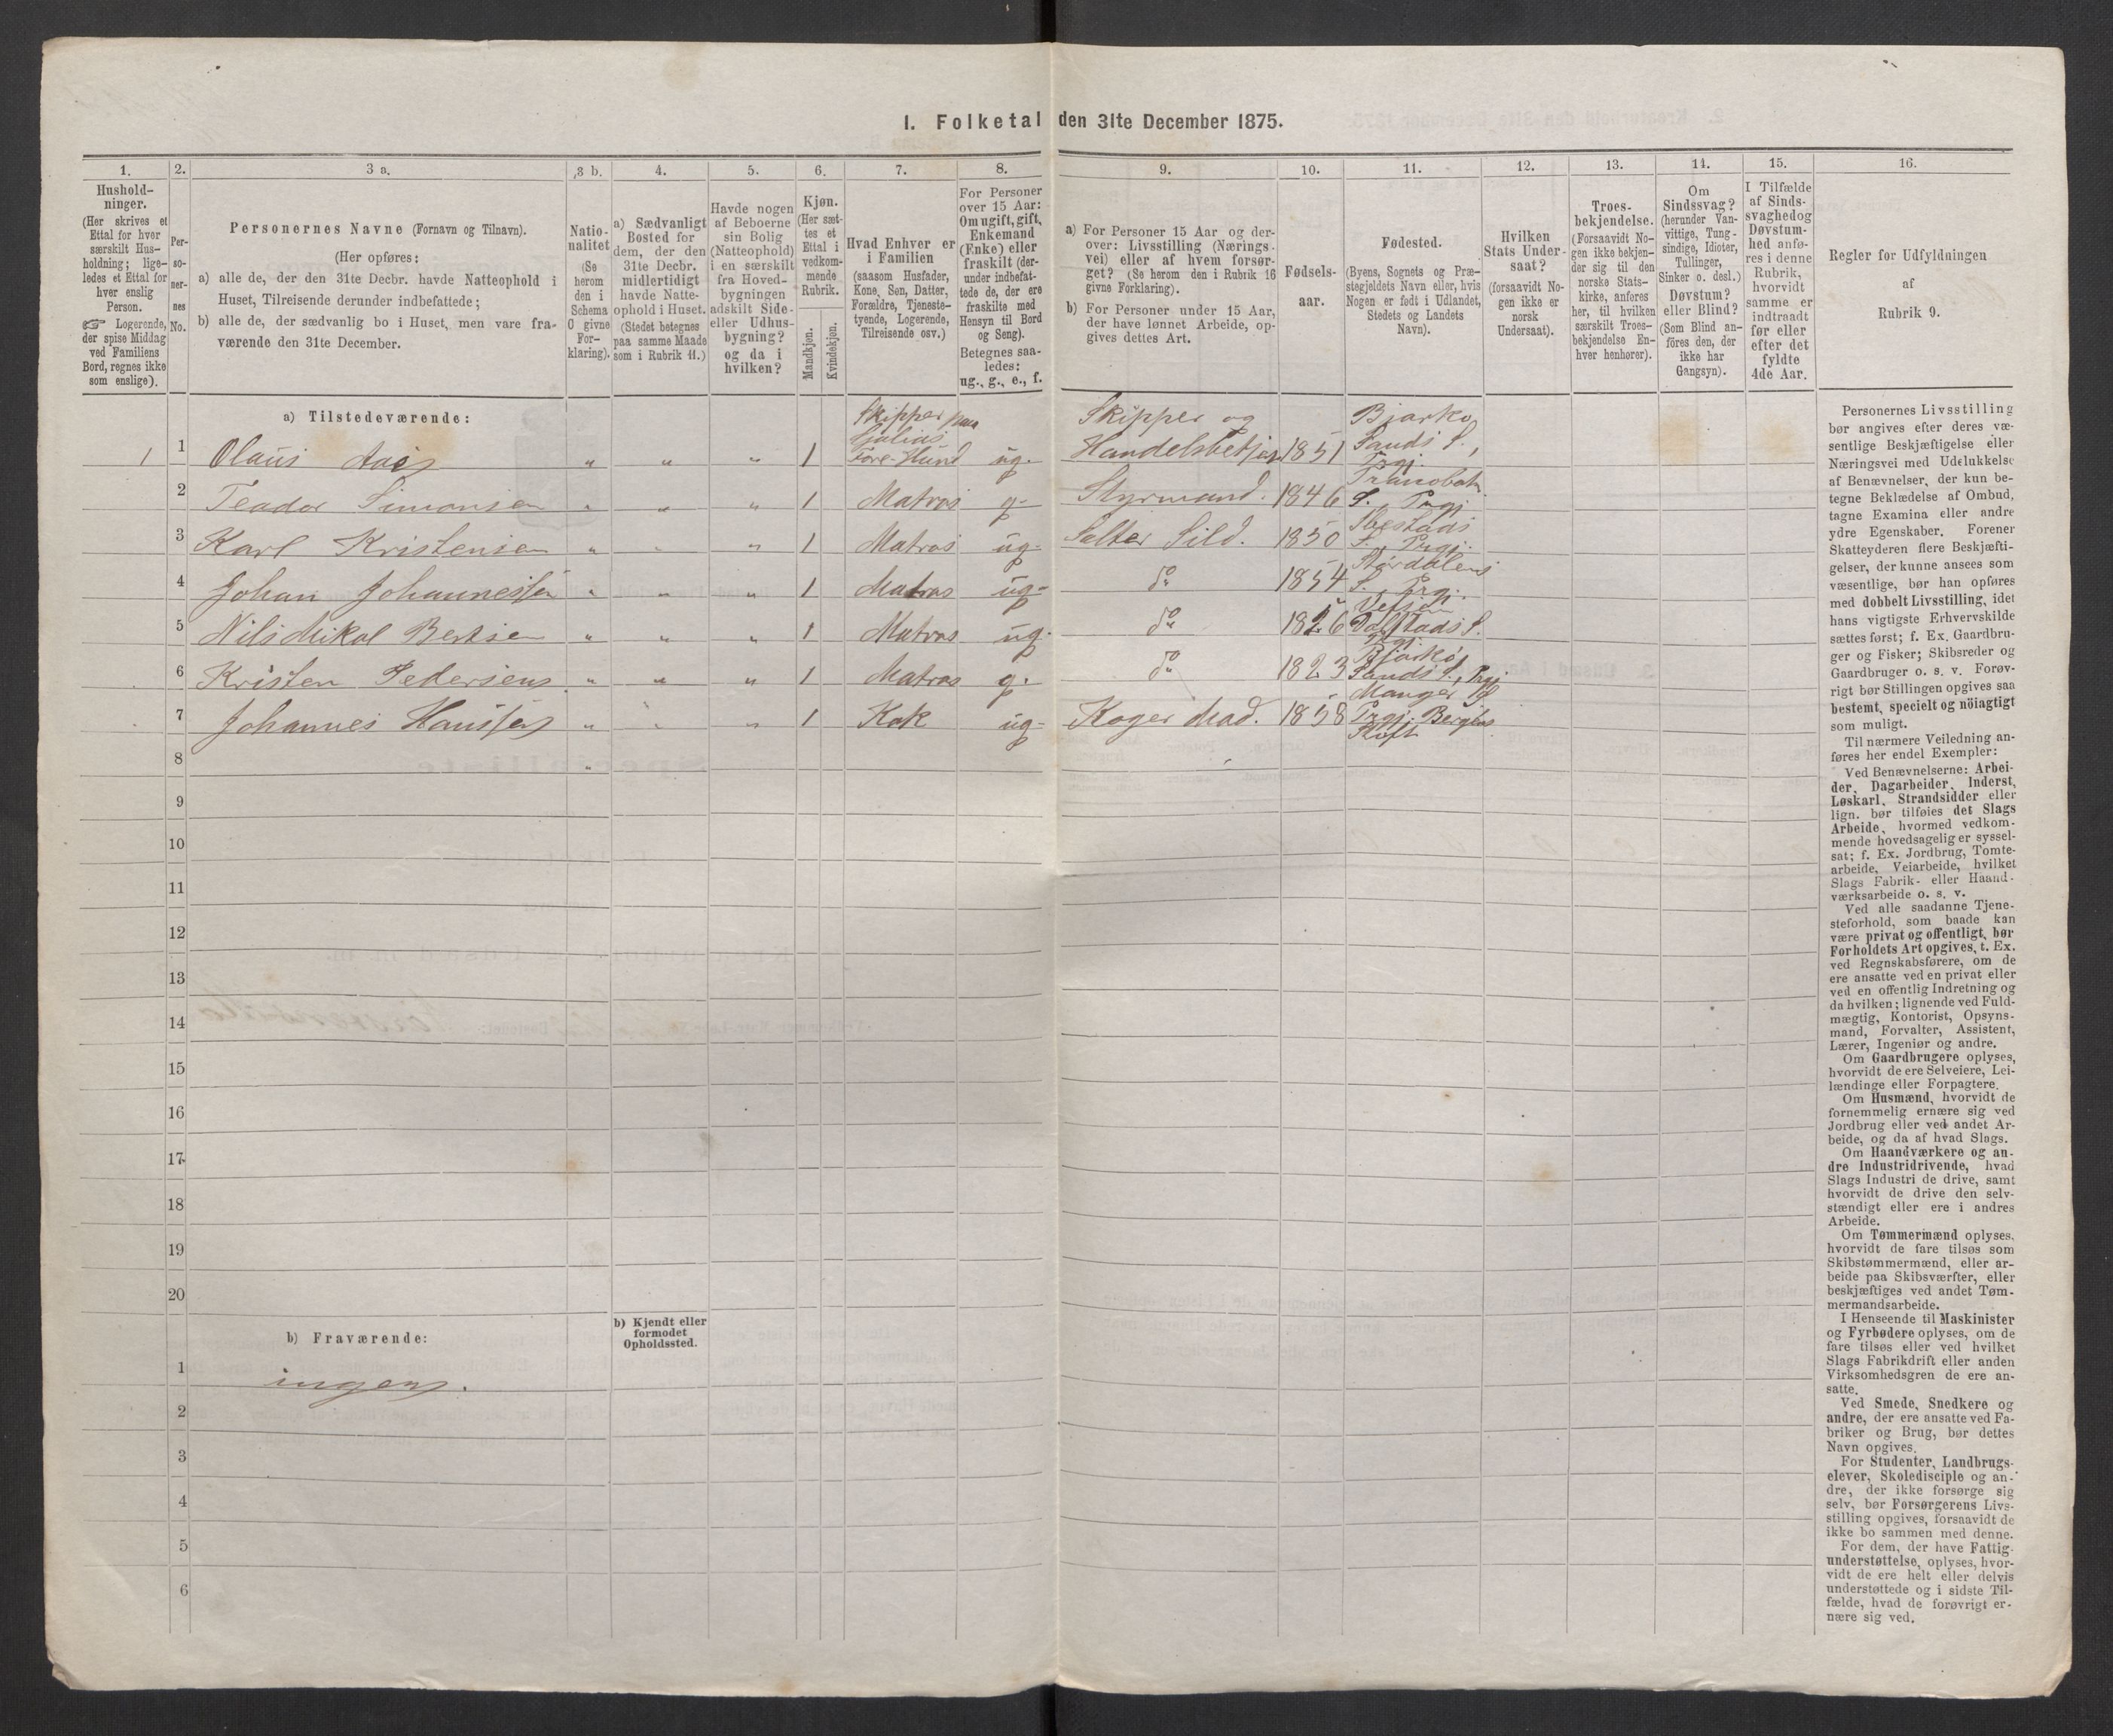 I. Folketal den 31te December 1875.
1.
Hushold-
ninger.
(Her skrives et
Ettal for hver
særskilt Hus-
holdning; lige-
ledes et Ettal for
hver enslig
Person.
☞ Logerende,
der spise Middag
ved Familiens
Bord, regnes ikke
som enslige).
2.
Per-
so-
ner-
nes
No.
3 a.
Personernes Navne (Fornavn og Tilnavn).
(Her opføres:
a) alle de, der den 31te Decbr. havde Natteophold i
Huset, Tilreisende derunder indbefattede;
b) alle de, der sædvanlig bo i Huset, men vare fra-
værende den 31te December.
3 b.
Natio-
nalitet
(Se
herom
den i
Schema
O givne
For-
klaring).
4.
a) Sædvanligt
Bosted for
dem, der den
31te Decbr.
midlertidigt
havde Natte-
ophold i Huset.
(Stedet betegnes
paa samme Maade
som i Rubrik 11.)
5.
Havde nogen
af Beboerne
sin Bolig
(Natteophold)
i en særskilt
fra Hoved-
bygningen
adskilt Side-
eller Udhus-
bygning?
og da i
hvilken?
6.
Kjøn.
(Her sæt-
tes et
Ettal i
vedkom-
mende
Rubrik.
Mandkjøn.
Kvindekjøn.
7.
Hvad Enhver er
i Familien
(saasom Husfader,
Kone, Søn, Datter,
Forældre, Tjeneste-
tyende, Logerende,
Tilreisende osv.)
8.
For Personer
over 15 Aar:
Om ugift, gift,
Enkemand
(Enke) eller
fraskilt (der-
under indbefat-
tede de, der ere
fraskilte med
Hensyn til Bord
og Seng).
Betegnes saa-
ledes:
ug., g., e., f.
9.
a) For Personer 15 Aar og der-
over: Livsstilling (Nærings-
vei) eller af hvem forsør-
get? (Se herom den i Rubrik 16
givne Forklaring).
b) For Personer under 15 Aar,
der have lønnet Arbeide, op-
gives dettes Art.
10.
Fødsels-
aar.
11.
Fødested.
(Byens, Sognets og Præ-
stegjeldets Navn eller, hvis
Nogen er født i Udlandet,
Stedets og Landets
Navn).
12.
Hvilken
Stats Under-
saat?
(forsaavidt No-
gen ikke er
norsk
Undersaat).
13.
Troes-
bekjendelse.
(Forsaavidt No-
gen ikke bekjen-
der sig til den
norske Stats-
kirke, anføres
her, til hvilken
særskilt Troes-
bekjendelse En-
hver henhører).
14.
Om
Sindssvag?
(herunder Van-
vittige, Tung-
sindige, Idioter,
Tullinger,
Sinker o. desl.)
Døvstum?
eller Blind?
(Som Blind an-
føres den, der
ikke har
Gangsyn).
15.
I Tilfælde
af Sinds-
svaghed og
Døvstum-
hed anfø-
res i denne
Rubrik,
hvorvidt
samme er
indtraadt
før eller
efter det
fyldte
4de Aar.
16.
Regler for Udfyldningen
af
Rubrik 9.
a) Tilstedeværende:
1 1 Olaus Aas „ „ „ 1 Skipper paa Fore-Hund ug. Skipper og Handelsbetjen 1851 Bjarkø Sands S., Prgj.
2 Teador Simonsen „ „ „ 1 Matros g. Styrmand. 1846 Tranobotn S., Prgj
3 Karl Kristensen „ „ „ 1 Matros ug. Salter Sild. 1850 Ibestads S. Prgj.
4 Johan Johannessen „ „ „ 1 Matros ug. do 1854 Størdalens S. Prgj.
5 Nils Mikal Bertsen „ „ „ 1 Matros ug. do 1826 Vefsen Dolstads S. Prgj.
6 Kristen Pedersen „ „ „ 1 Matros g. do 1823 Bjarkø, Sands S., Prgj
7 Johannes Hansen „ „ „ 1 Kok ug. Koger Mad. 1858 Manger Prgj. Bergens Stift
8 „
9
10
11
12
13
14
15
16
17
18
19
20
b) Fraværende:
b) Kjendt eller
formodet
Opholdssted.
1 ingen.
2
3
4
5
6
Personernes Livsstilling
bør angives efter deres væ-
sentlige Beskjæftigelse eller
Næringsvei med Udelukkelse
af Benævnelser, der kun be-
tegne Beklædelse af Ombud,
tagne Examina eller andre
ydre Egenskaber. Forener
Skatteyderen flere Beskjæfti-
gelser, der kunne ansees som
væsentlige, bør han opføres
med dobbelt Livsstilling, idet
hans vigtigste Erhvervskilde
sættes først; f. Ex. Gaardbru-
ger og Fisker; Skibsreder og
Gaardbruger o. s. v. Forøv-
rigt bør Stillingen opgives saa
bestemt, specielt og nöiagtigt
som muligt.
Til nærmere Veiledning an-
føres her endel Exempler:
Ved Benævnelserne: Arbei-
der, Dagarbeider, Inderst,
Løskarl, Strandsidder eller
lign. bør tilføies det Slags
Arbeide, hvormed vedkom-
mende hovedsagelig er syssel-
sat; f. Ex. Jordbrug, Tomte-
arbeide, Veiarbeide, hvilket
Slags Fabrik- eller Haand-
værksarbeide o. s. v.
Ved alle saadanne Tjene-
steforhold, som baade kan
være privat og offentligt, bør
Forholdets Art opgives, t. Ex.
ved Regnskabsførere, om de
ere ansatte ved en privat eller
ved en offentlig Indretning og
da hvilken; lignende ved Fuld-
mægtig, Kontorist, Opsyns-
mand, Forvalter, Assistent,
Lærer, Ingeniør og andre.
Om Gaardbrugere oplyses,
hvorvidt de ere Selveiere, Lei-
lændinge eller Forpagtere.
Om Husmænd, hvorvidt de
fornemmelig ernære sig ved
Jordbrug eller ved andet Ar-
beide, og da af hvad Slags.
Om Haandværkere og an-
dre Industridrivende, hvad
Slags Industri de drive, samt
hvorvidt de drive den selv-
stændigt eller ere i andres
Arbeide.
Om Tømmermænd oplyses,
hvorvidt de fare tilsøs som
Skibstømmermænd, eller ar-
beide paa Skibsværfter, eller
beskjæftiges ved andet Tøm-
mermandsarbeide.
I Henseende til Maskinister
og Fyrbødere oplyses, om de
fare tilsøs eller ved hvilket
Slags Fabrikdrift eller anden
Virksomhedsgren de ere an-
satte.
Ved Smede, Snedkere og
andre, der ere ansatte ved Fa-
briker og Brug, bør dettes
Navn opgives.
For Studenter, Landbrugs-
elever, Skoledisciple og an-
dre, der ikke forsørge sig
selv, bør Forsørgerens Livs-
stilling opgives, forsaavidt de
ikke bo sammen med denne.
For dem, der have Fattig-
understøttelse, oplyses, hvor-
vidt de ere helt eller delvis
understøttede og i sidste Til-
fælde, hvad de forøvrigt er-
nære sig ved.